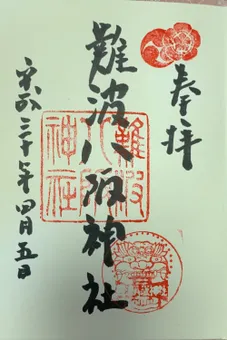 奉拝
難波八阪神社
難波八阪神社
平成三十年四月五日